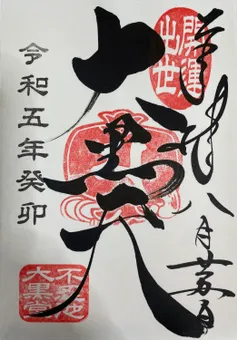 奉拝 八月
開運
出世
大黒天
令和五年癸卯
不忍池
大黒堂